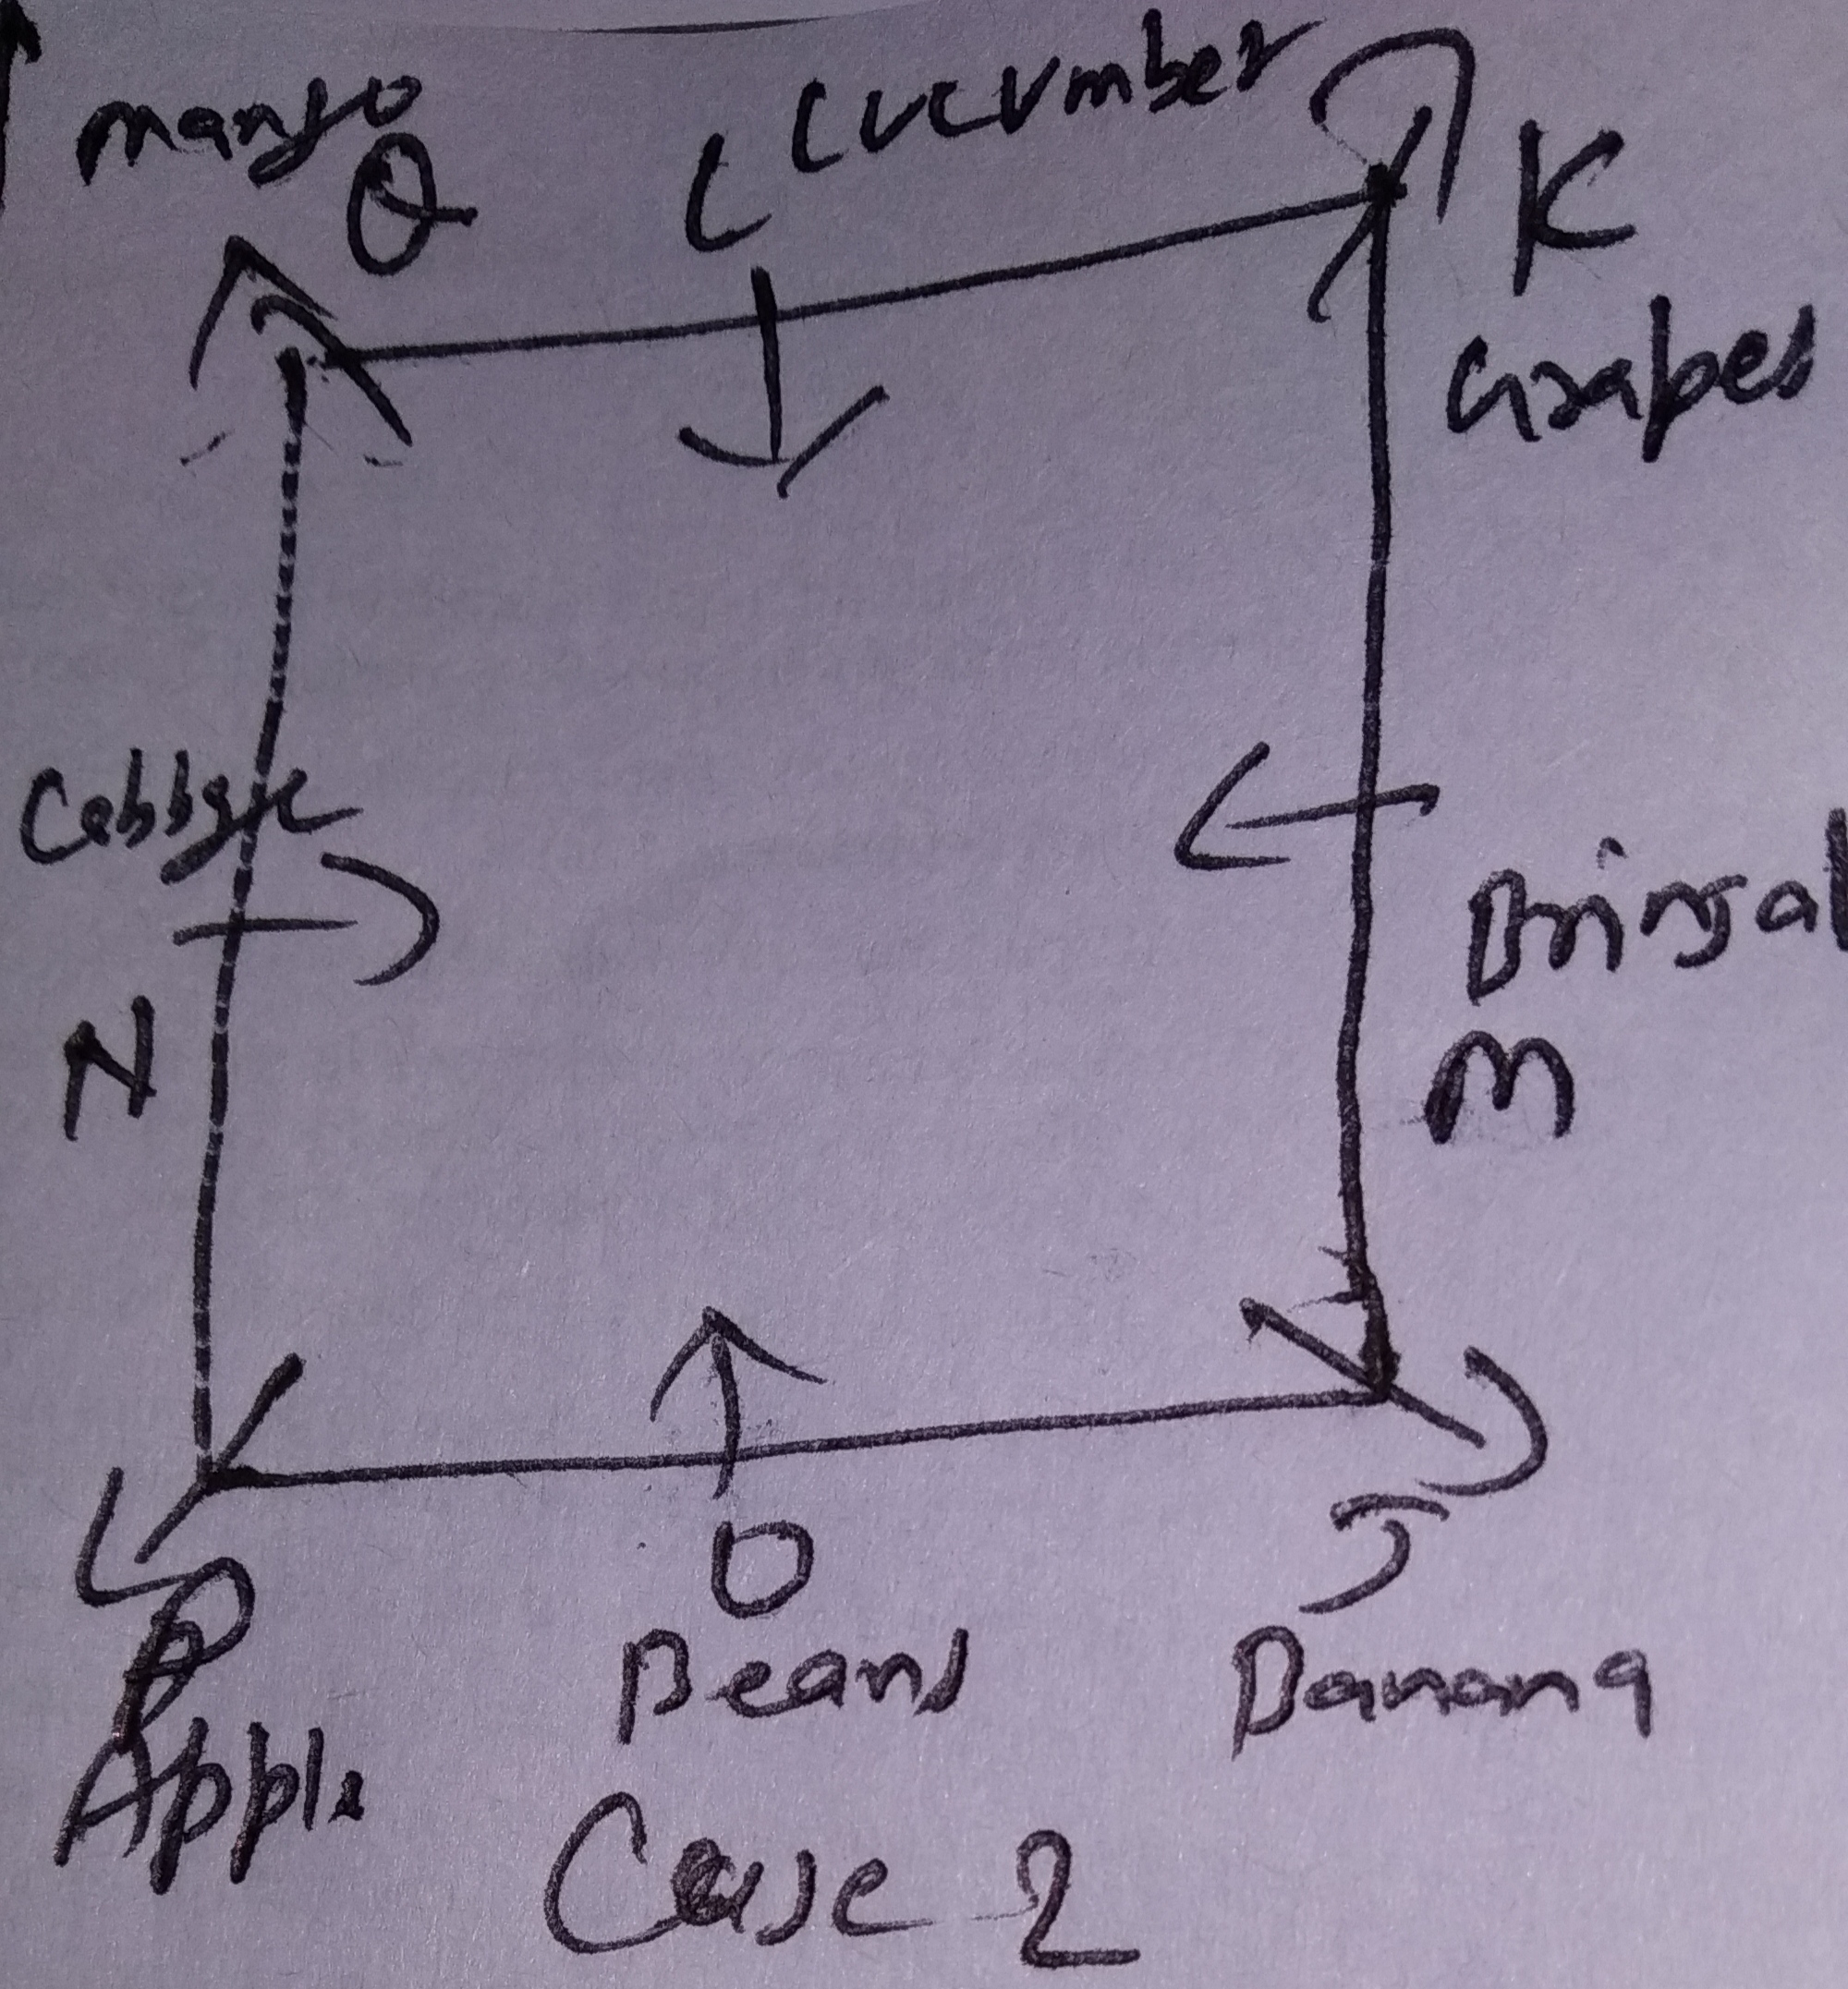 mango
Q
L
cucumber
K
Grapes
Cabbge
N
Brinjal
M
P
Apple
O
Beans
J
Banana
Case 2